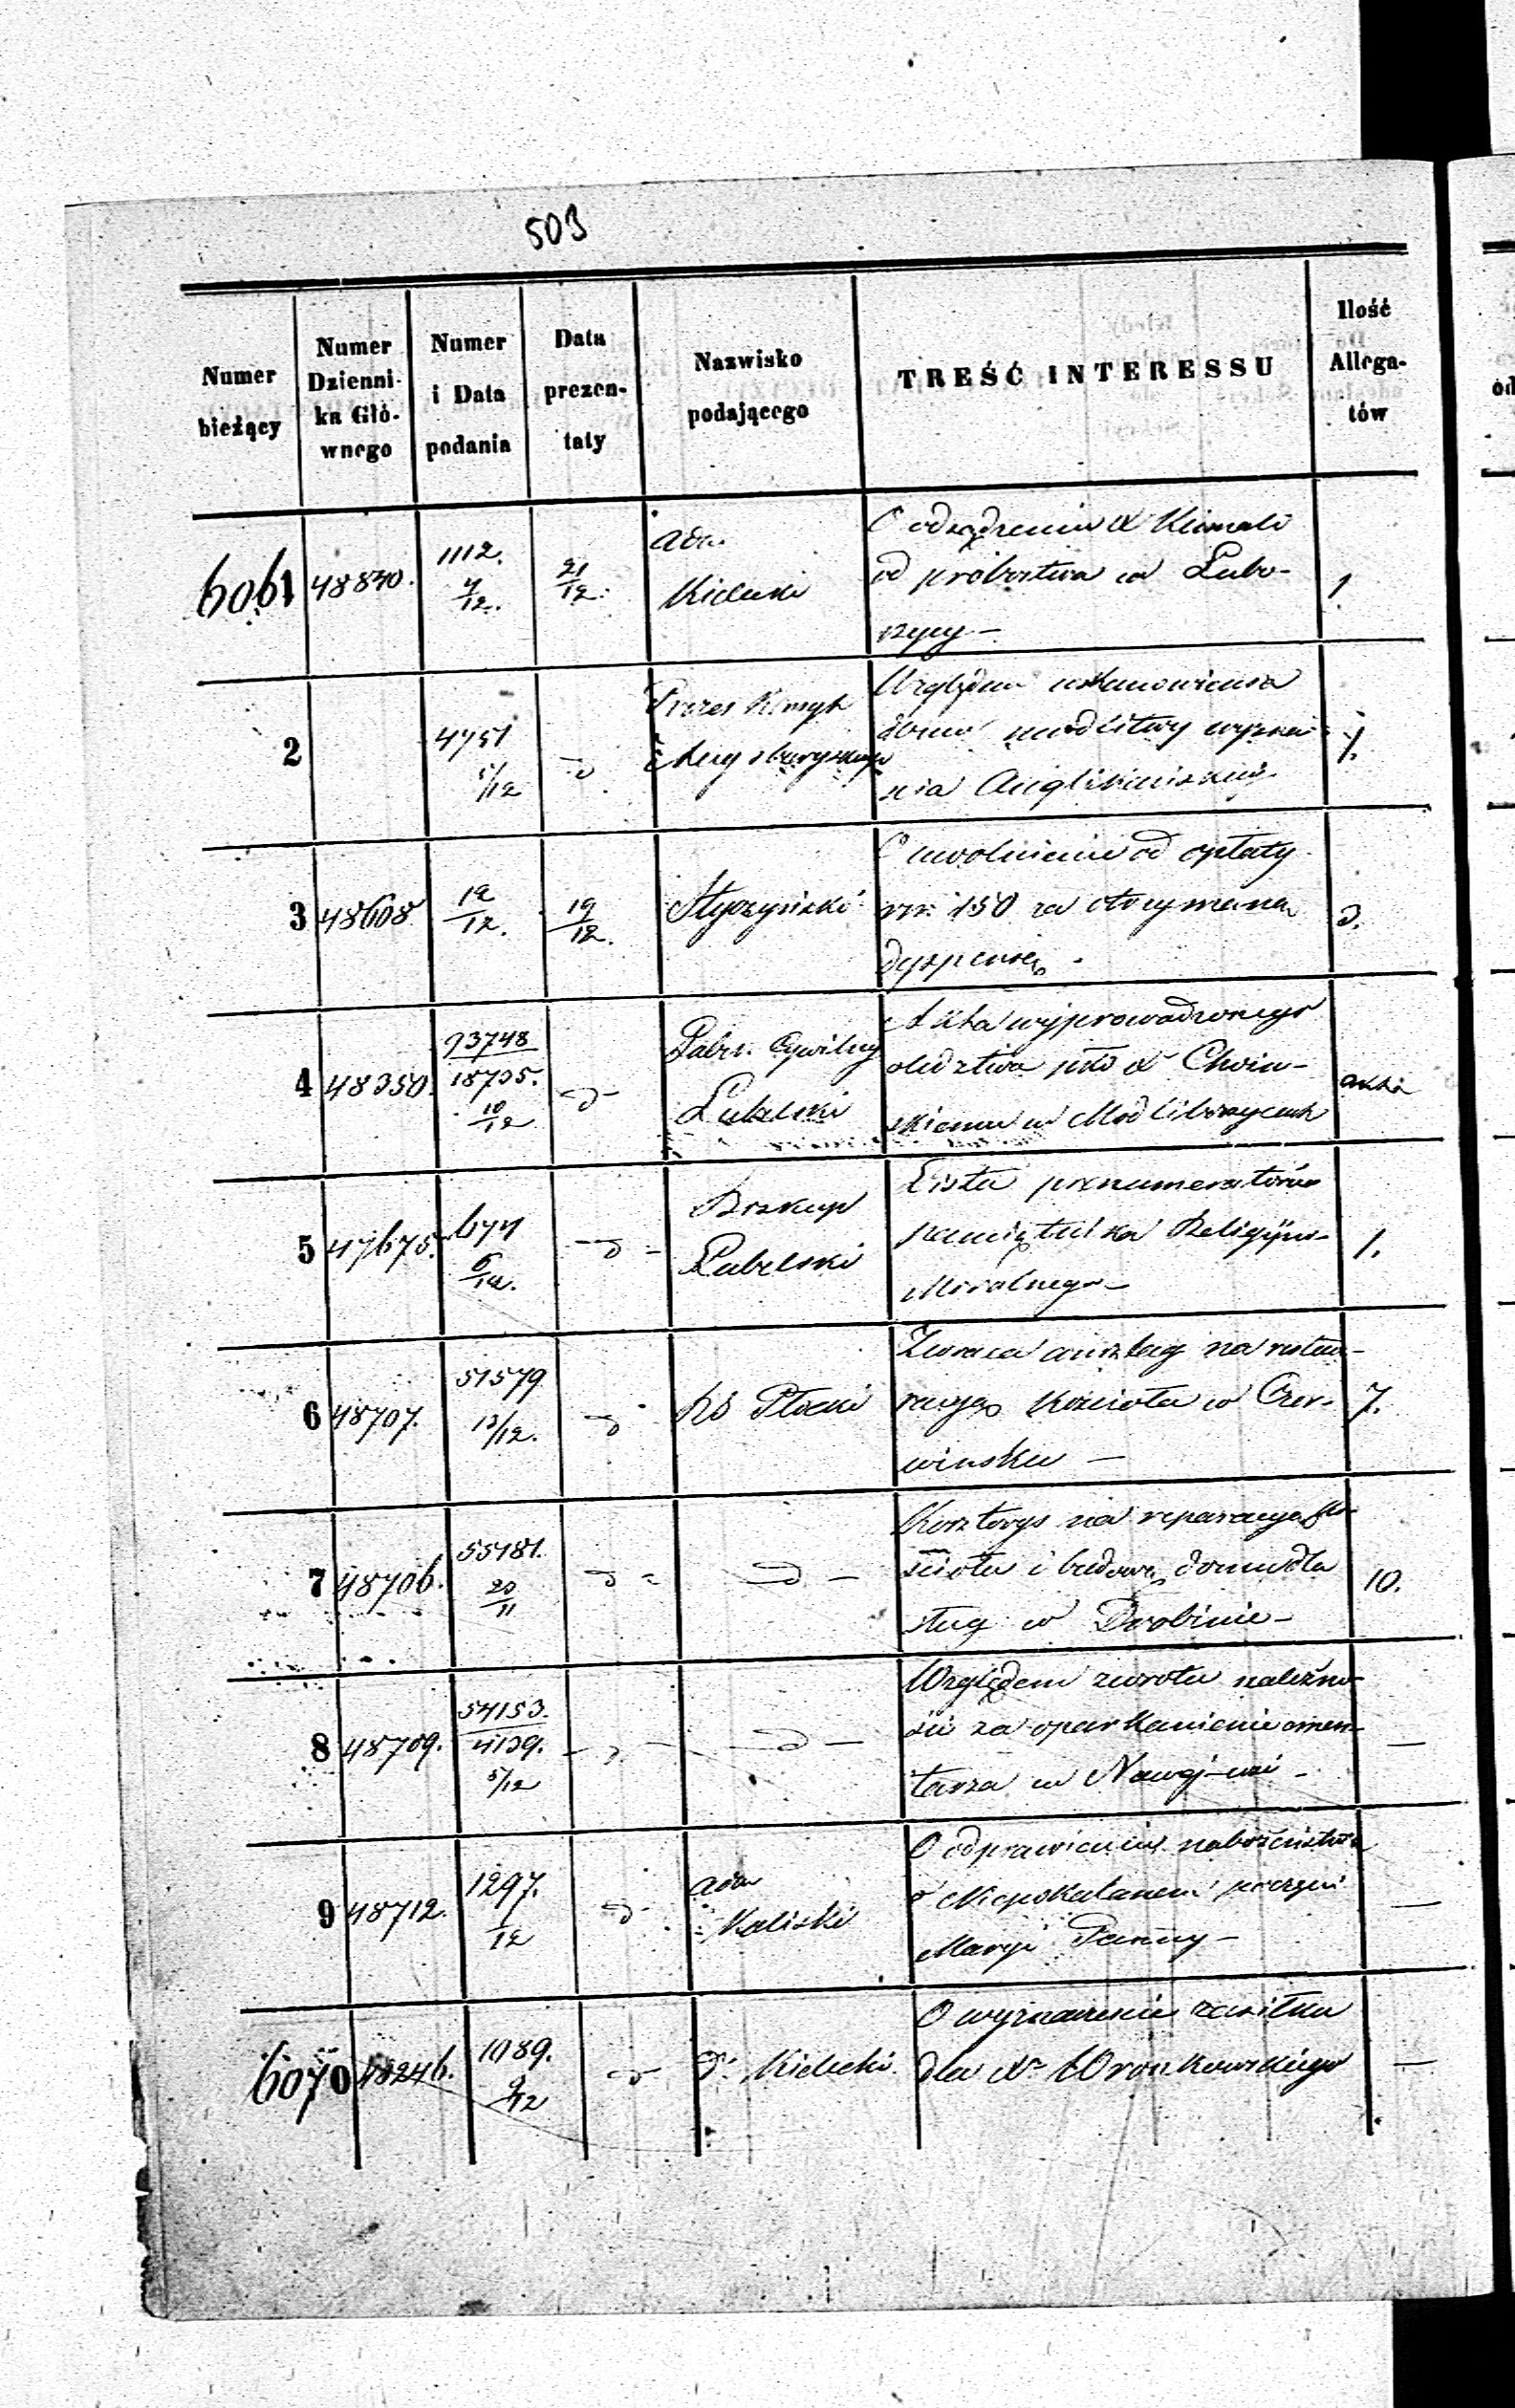 503
Numer bieżący
Numer Dzienni-ka Głó-wnego
Numer i Data podania
Data prezen-taty
Nazwisko podającego
TREŚĆ INTERESSU
Ilość Allega-tów
6061 48840. 1112. 4/12. 21/12. Adm. Kielecki
O odsądzeniu X Klimali
od probostwa w Lubo-
rzycy — 1
2 4751 5/12 d Prezes Konsyst
Względem ustanowienia
domu modlitwy wyzna-
nia Anglikańskiego 1.
3 48608 12/12. 19/12. Styczyński
O uwolnienie od opłaty
rsr. 150 za otrzymaną
dyspensę. 2.
4 48350. 93748/18735. 10/12 -d- Lubelski
Akta wyprowadzonego
śledztwa pko X Choiń-
skiemu w Modliborzycach akta
5 47675. 674 6/12. -d- Biskup Lubelski
Lista prenumeratorów
pamiętnika Religijno-
Moralnego — 1.
6 48707. 51579 13/12. d RG Płocki
Zwraca anszlag na restau-
racyą kościoła w Czer-
wińsku — 7.
7 48706. 55481. 20/11 d — d —
Kosztorys na reparacyą ko-
ścioła i budowę domu dla
sług w Drobinie — 10.
8 48709. 54153./4139. 5/12 - d - — d —
Względem zwrotu należno-
ści za oparkanienie cmen-
tarza w Nawej-wsi — —
9 48712. 1297. 1/12 d Adm Kaliski
O odprawieniu nabożeństwa
o Niepokalanem poczęciu
Maryi Panny — —
6070 48246. 1089. 9/12 d d. Kielecki.
O wyznaczenie zasiłku
dla X Wronkowskiego —